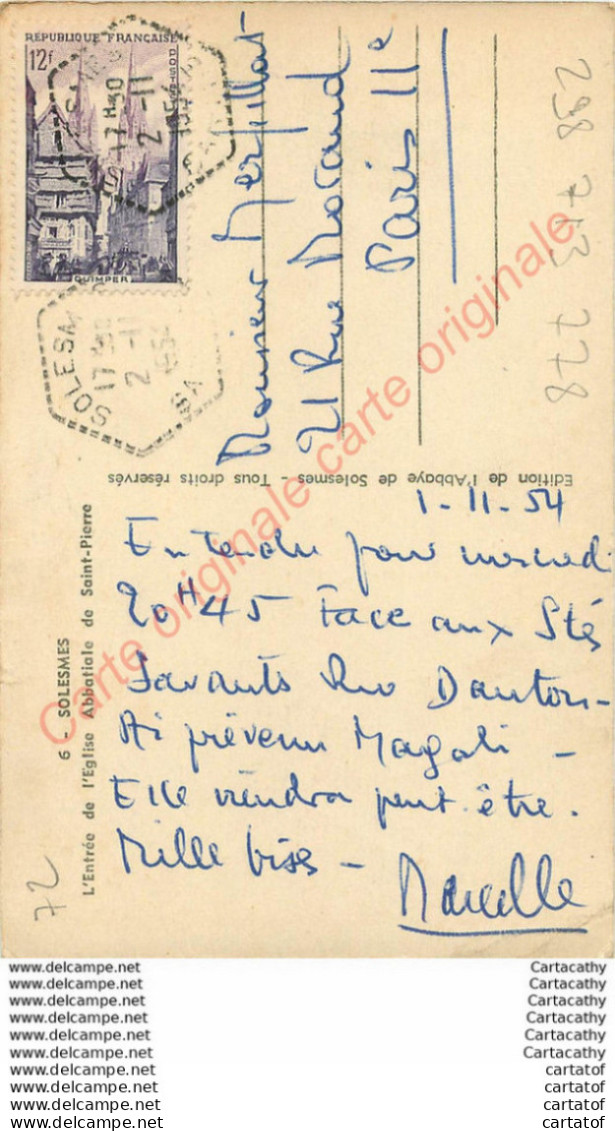 RÉPUBLIQUE FRANÇAISE
12f
POSTES
QUIMPER
17 H30
2 -11
1954
SOLESM
17 H30
2 -11
1954
Monsieur
21 Rue Morand
Paris 11e
298 713 778
Edition de l'Abbaye de Solesmes - Tous droits réservés
6 - SOLESMES
L'Entrée de l'Eglise Abbatiale de Saint-Pierre
1-11-54
Entendu pour mercredi
20H45 Face aux Stés
Savants Rue Danton-
Ai prévenu Magali -
Elle viendra peut être.
Mille bises -
Marcelle
72
Carte originale carte originale
www.delcampe.net Cartacathy
www.delcampe.net Cartacathy
www.delcampe.net Cartacathy
www.delcampe.net Cartacathy
www.delcampe.net Cartacathy
www.delcampe.net Cartacathy
www.delcampe.net cartatof
www.delcampe.net cartatof
www.delcampe.net cartatof
www.delcampe.net cartatof